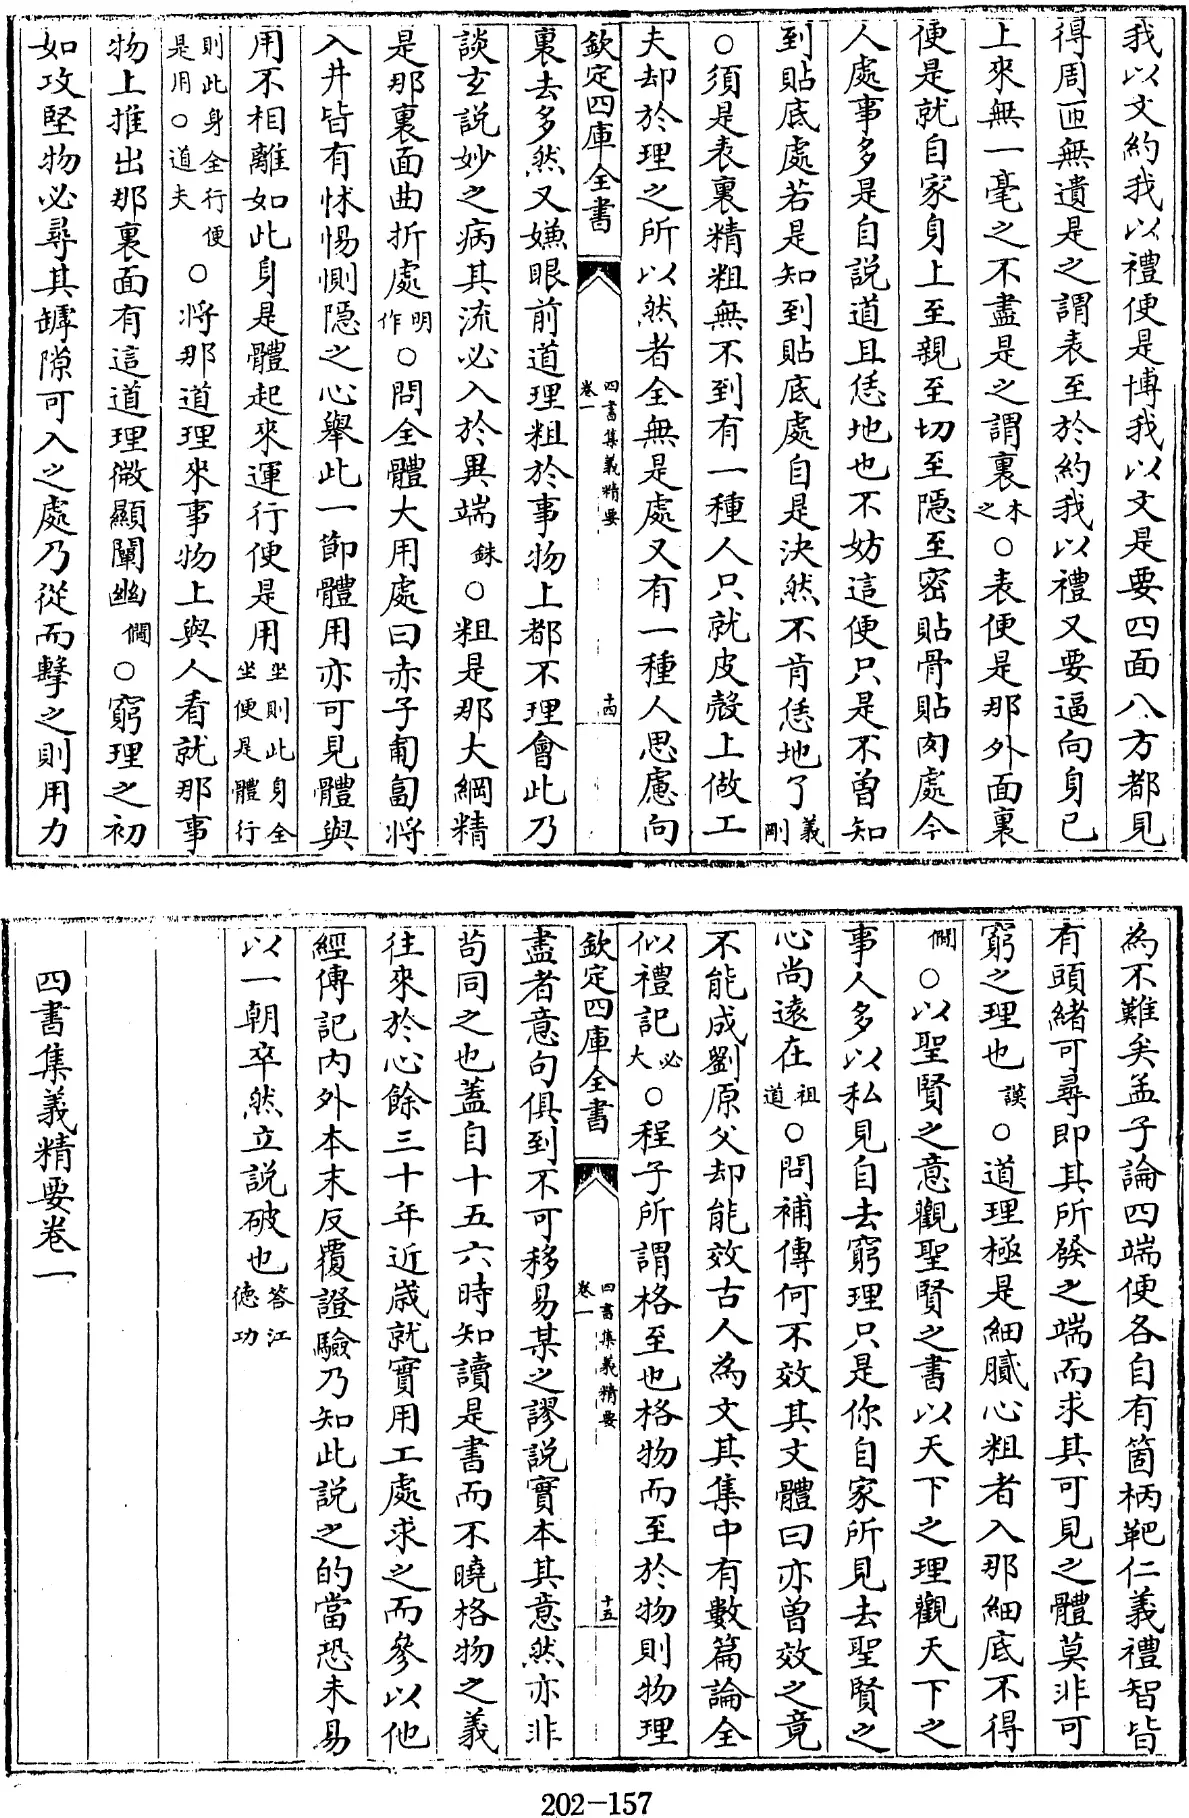 我以文約我以禮便是博我以文是要四面八方都見
得周匝無遺是之謂表至於約我以禮又要逼向身己
上來無一毫之不盡是之謂裏木之○表便是那外面裏
便是就自家身上至親至切至隱至密貼骨貼肉處今
人處事多是自説道且恁地也不妨這便只是不曾知
到貼底處若是知到貼底處自是決然不肯恁地了義剛
○須是表裏精粗無不到有一種人只就皮殼上做工
夫却於理之所以然者全無是處又有一種人思慮向
欽定四庫全書
四書集義精要
卷一
十四
裏去多然又嫌眼前道理粗於事物上都不理會此乃
談玄説妙之病其流必入於異端銖○粗是那大綱精
是那裏面曲折處明作○問全體大用處曰赤子匍匐將
入井皆有怵惕惻隱之心舉此一節體用亦可見體與
用不相離如此身是體起來運行便是用坐則此身全坐便是體行
則此身全行便是用○道夫○將那道理來事物上與人看就那事
物上推出那裏面有這道理微顯闡幽僩○窮理之初
如攻堅物必尋其罅隙可入之處乃從而擊之則用力
為不難矣孟子論四端便各自有箇柄靶仁義禮智皆
有頭緒可尋即其所發之端而求其可見之體莫非可
窮之理也謨○道理極是細膩心粗者入那細底不得
僩○以聖賢之意觀聖賢之書以天下之理觀天下之
事人多以私見自去窮理只是你自家所見去聖賢之
心尚遠在祖道○問補傳何不效其文體曰亦曾效之竟
不能成劉原父却能效古人為文其集中有數篇論全
似禮記必大○程子所謂格至也格物而至於物則物理
欽定四庫全書
四書集義精要
卷一
十五
盡者意句俱到不可移易某之謬説實本其意然亦非
苟同之也蓋自十五六時知讀是書而不曉格物之義
往來於心餘三十年近歳就實用工處求之而參以他
經傳記内外本末反覆證驗乃知此説之的當恐未易
以一朝卒然立説破也答江德功
四書集義精要卷一
202-157